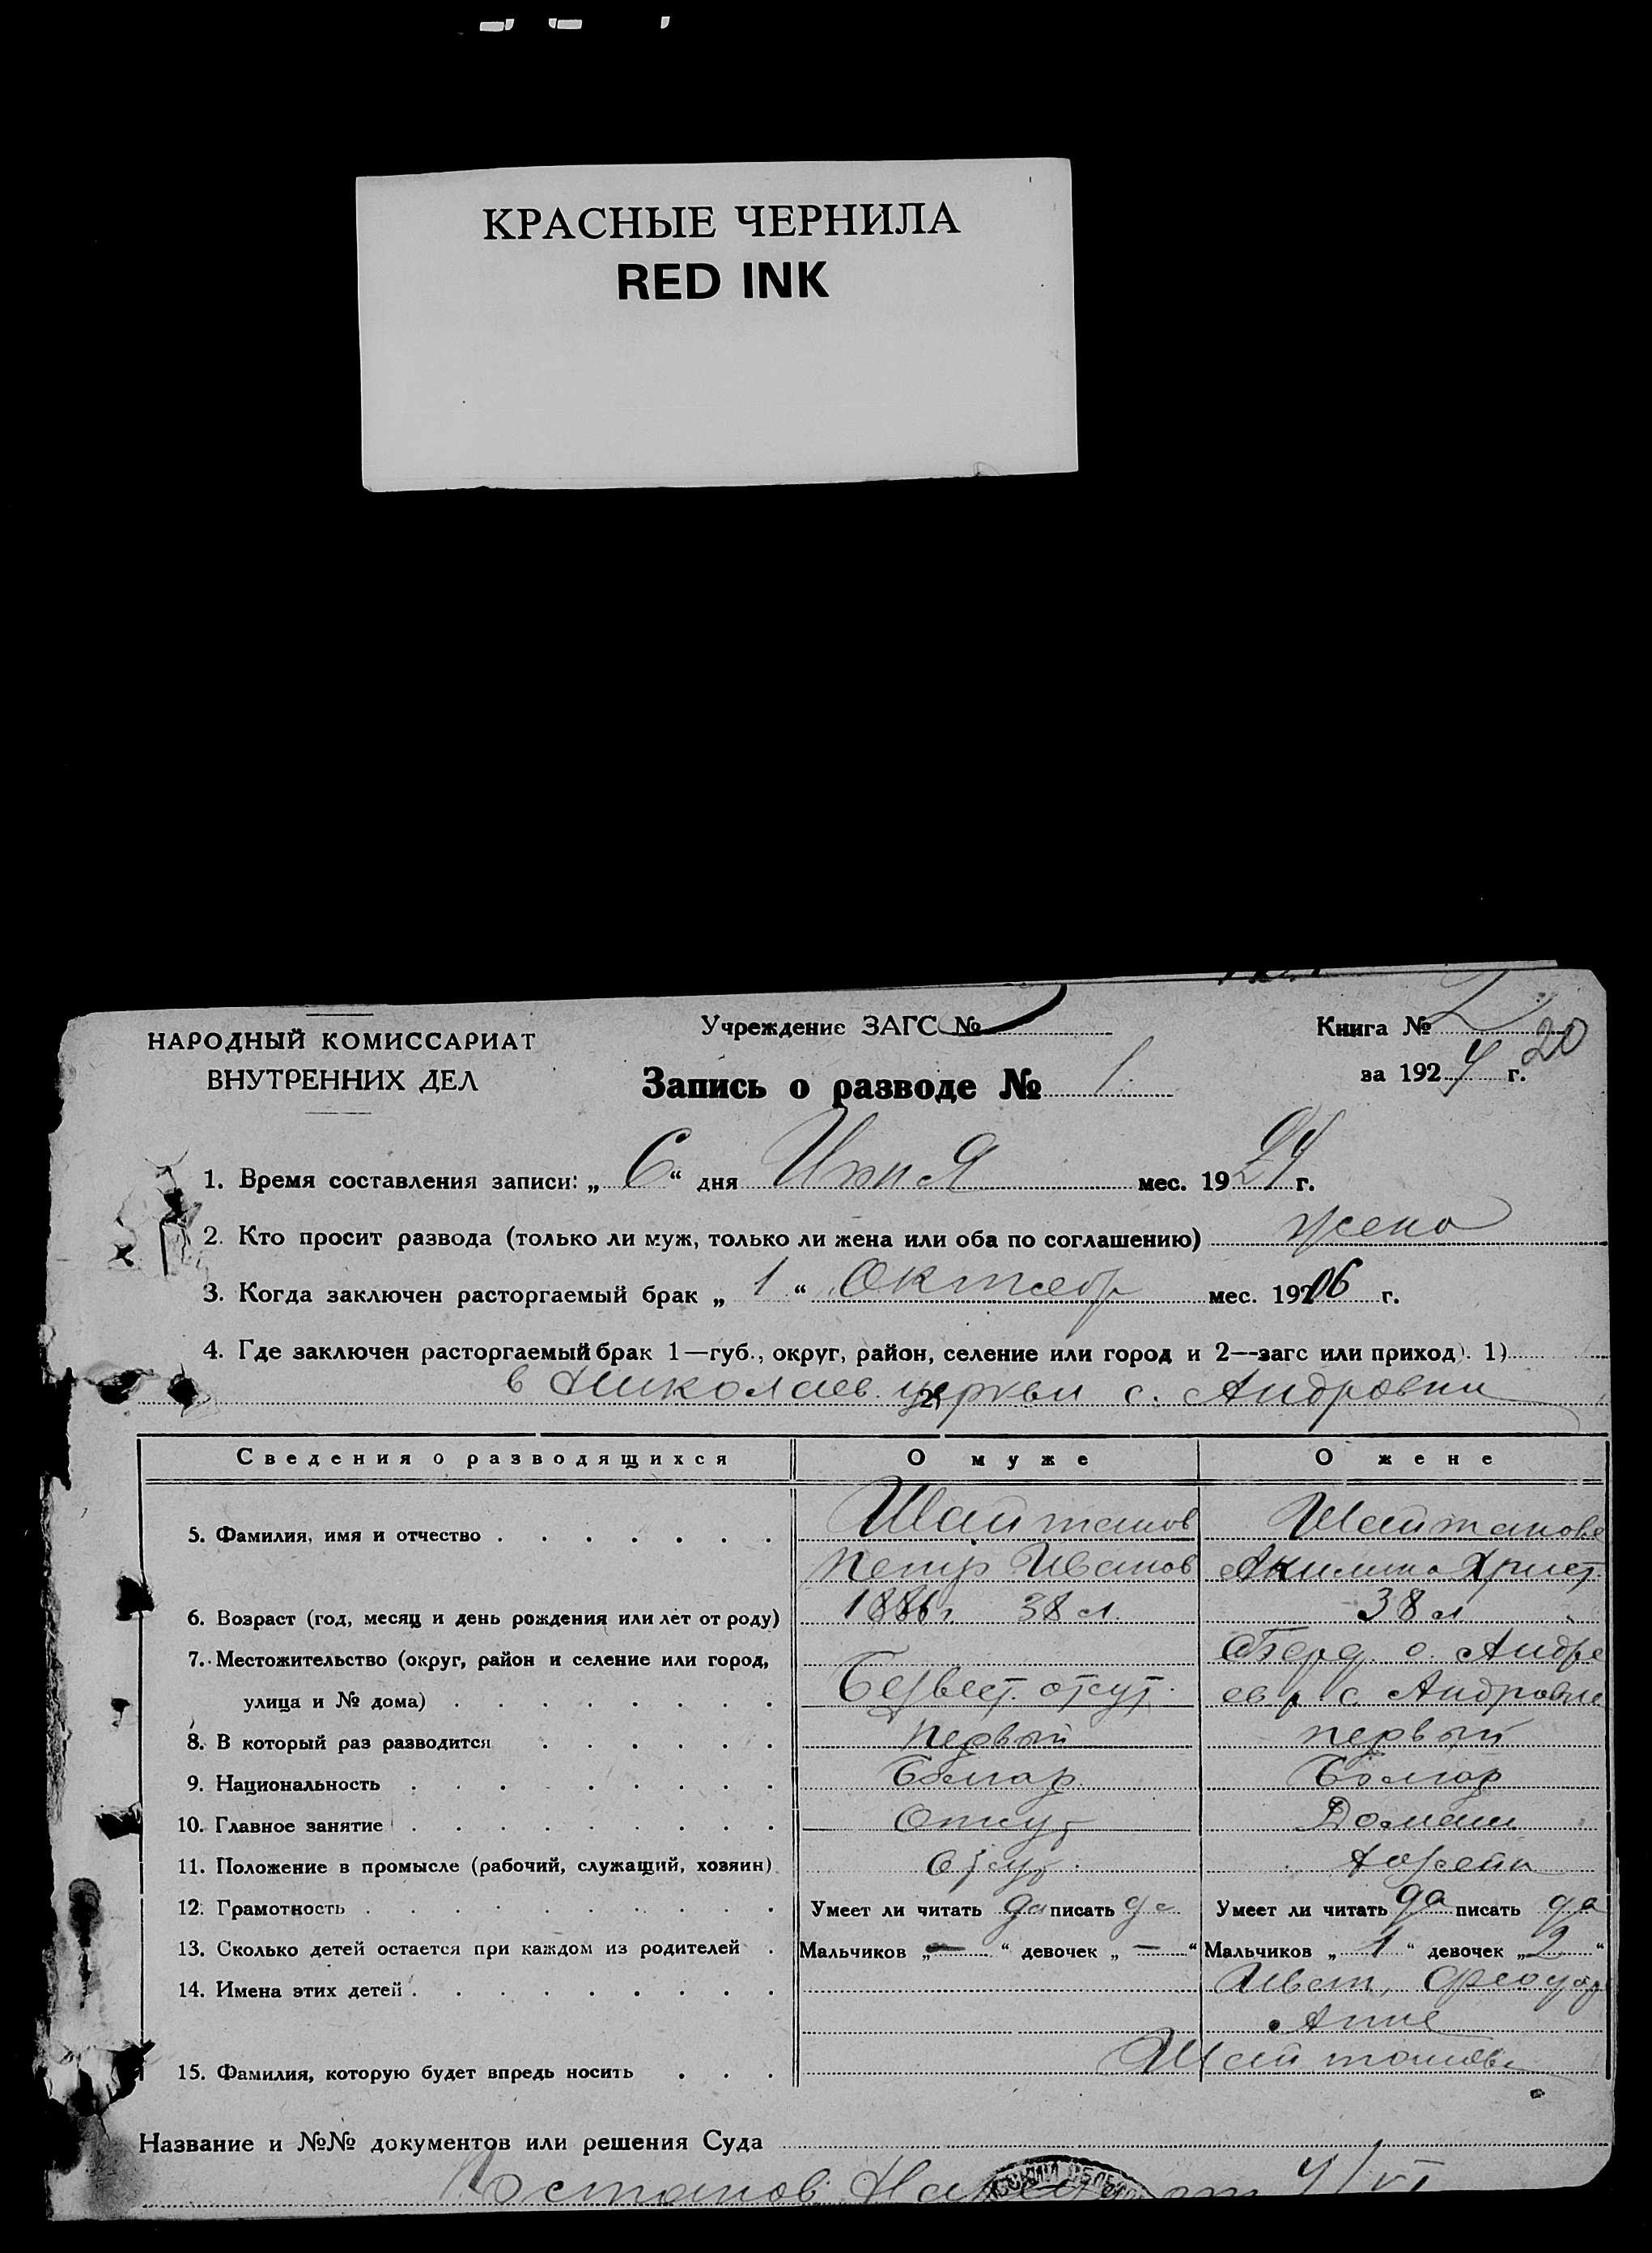 КРАСНЫЕ ЧЕРНИЛА
RED INK
НАРОДНЫЙ КОМИССАРИАТ
ВНУТРЕННИХ ДЕЛ
Учреждение ЗАГС №
Книга № 2
20
Запись о разводе № 1
за 1924 г.
1. Время составления записи: „ 6 “ дня Июня мес. 1924 г.
2. Кто просит развода (только ли муж, только ли жена или оба по соглашению) жена
3. Когда заключен расторгаемый брак „ 1 “ Октябр мес. 1906 г.
4. Где заключен расторгаемый брак 1—губ., округ, район, селение или город и 2—загс или приход). 1)
в Николаев. 2) церкви с. Андровки
Сведения о разводящихся О муже О жене
5. Фамилия, имя и отчество Шайтанов Шайтанова
Петр Иванов Акилина Христ.
6. Возраст (год, месяц и день рождения или лет от роду) 1886 г. 38 л. 38 л
7. Местожительство (округ, район и селение или город, Берд. о. Андре
улица и № дома) Безвест. отсут. ев р с Андровке
8. В который раз разводится первый первый
9. Национальность Болгар. Болгар
10. Главное занятие Отсут Домаш
11. Положение в промысле (рабочий, служащий, хозяин)
12. Грамотность Умеет ли читать да писать да Умеет ли читать да писать да
13. Сколько детей остается при каждом из родителей Мальчиков „ — “ девочек „ — “ Мальчиков „ 1 “ девочек „ 2 “
14. Имена этих детей Иван,
Анна
15. Фамилия, которую будет впредь носить Шайтанова
Название и №№ документов или решения Суда
Останов. от 4/VI